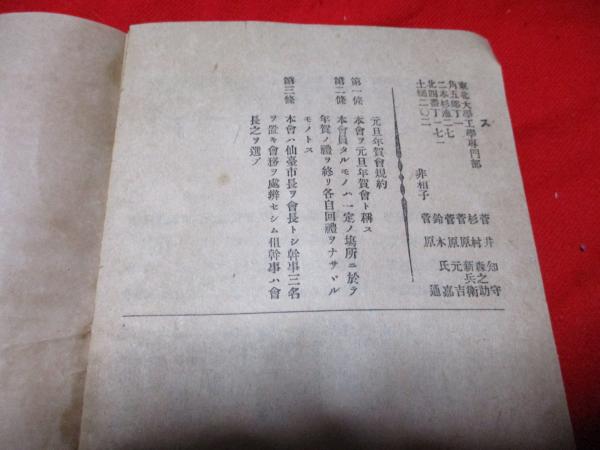 ス
東北大學工學專門部 菅井知守
角五郎丁一 杉村森之助
二本杉通二七 菅原新兵衛
北四番丁一七一 鈴木元吉
土樋二〇二 非相子 菅原通
元旦年賀會規約
第一條 本會ヲ元旦年賀會ト稱ス
第二條 本會員タルモノハ一定ノ場所ニ於テ
年賀ノ禮ヲ終リ各自回禮ヲナサヾル
モノトス
第三條 本會ハ仙臺市長ヲ會長トシ幹事三名
ヲ置キ會務ヲ處辨セシム但幹事ハ會
長之ヲ選ブ